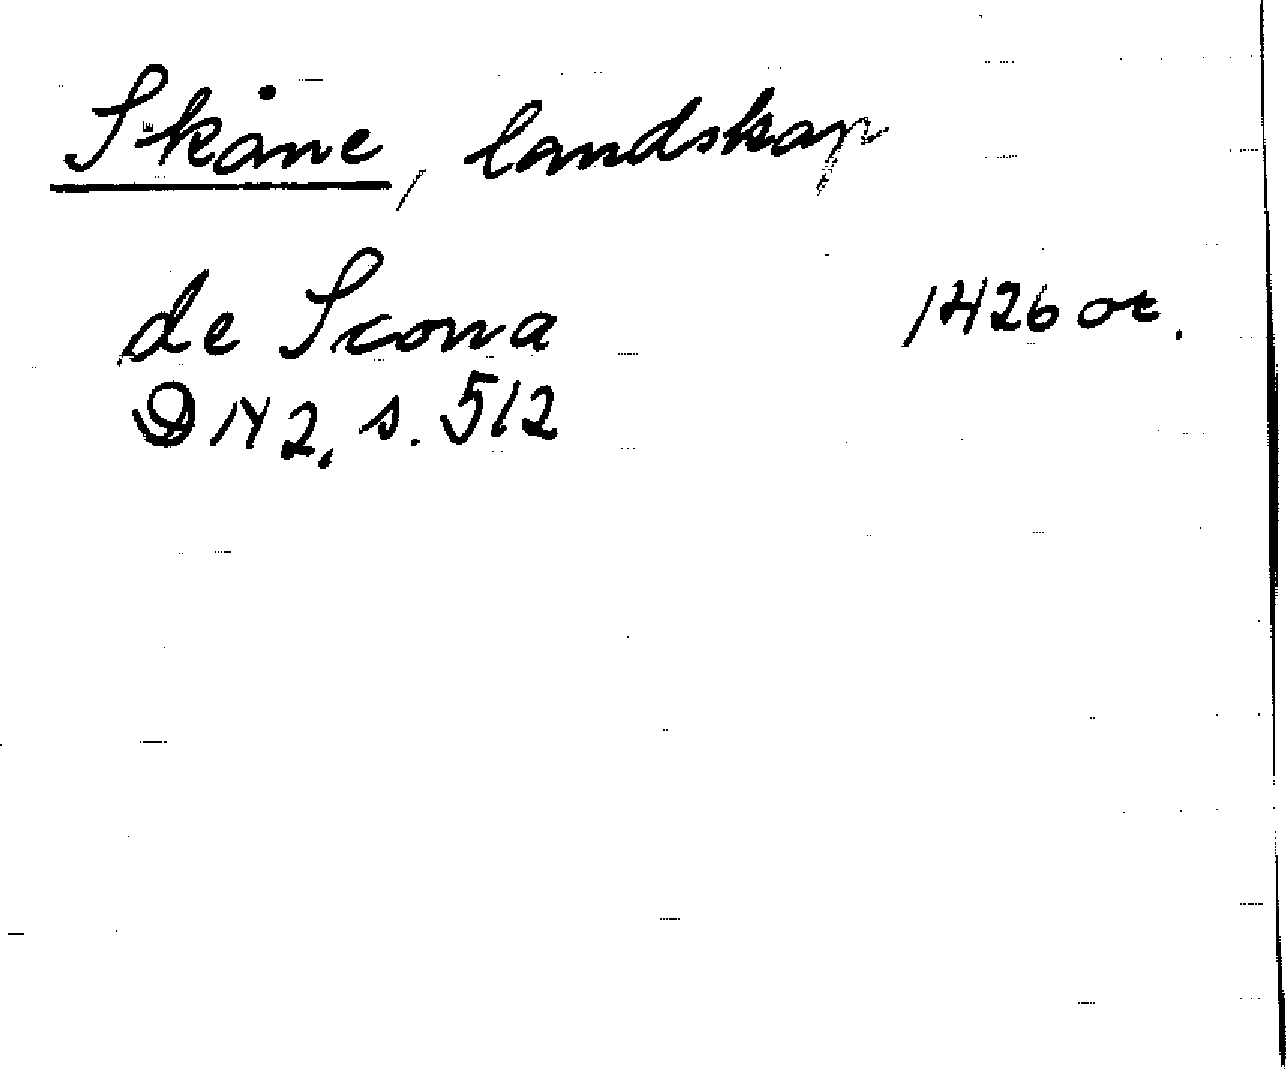 Skåne, landskap
de Scona 1426 or.
DN 2, s. 512